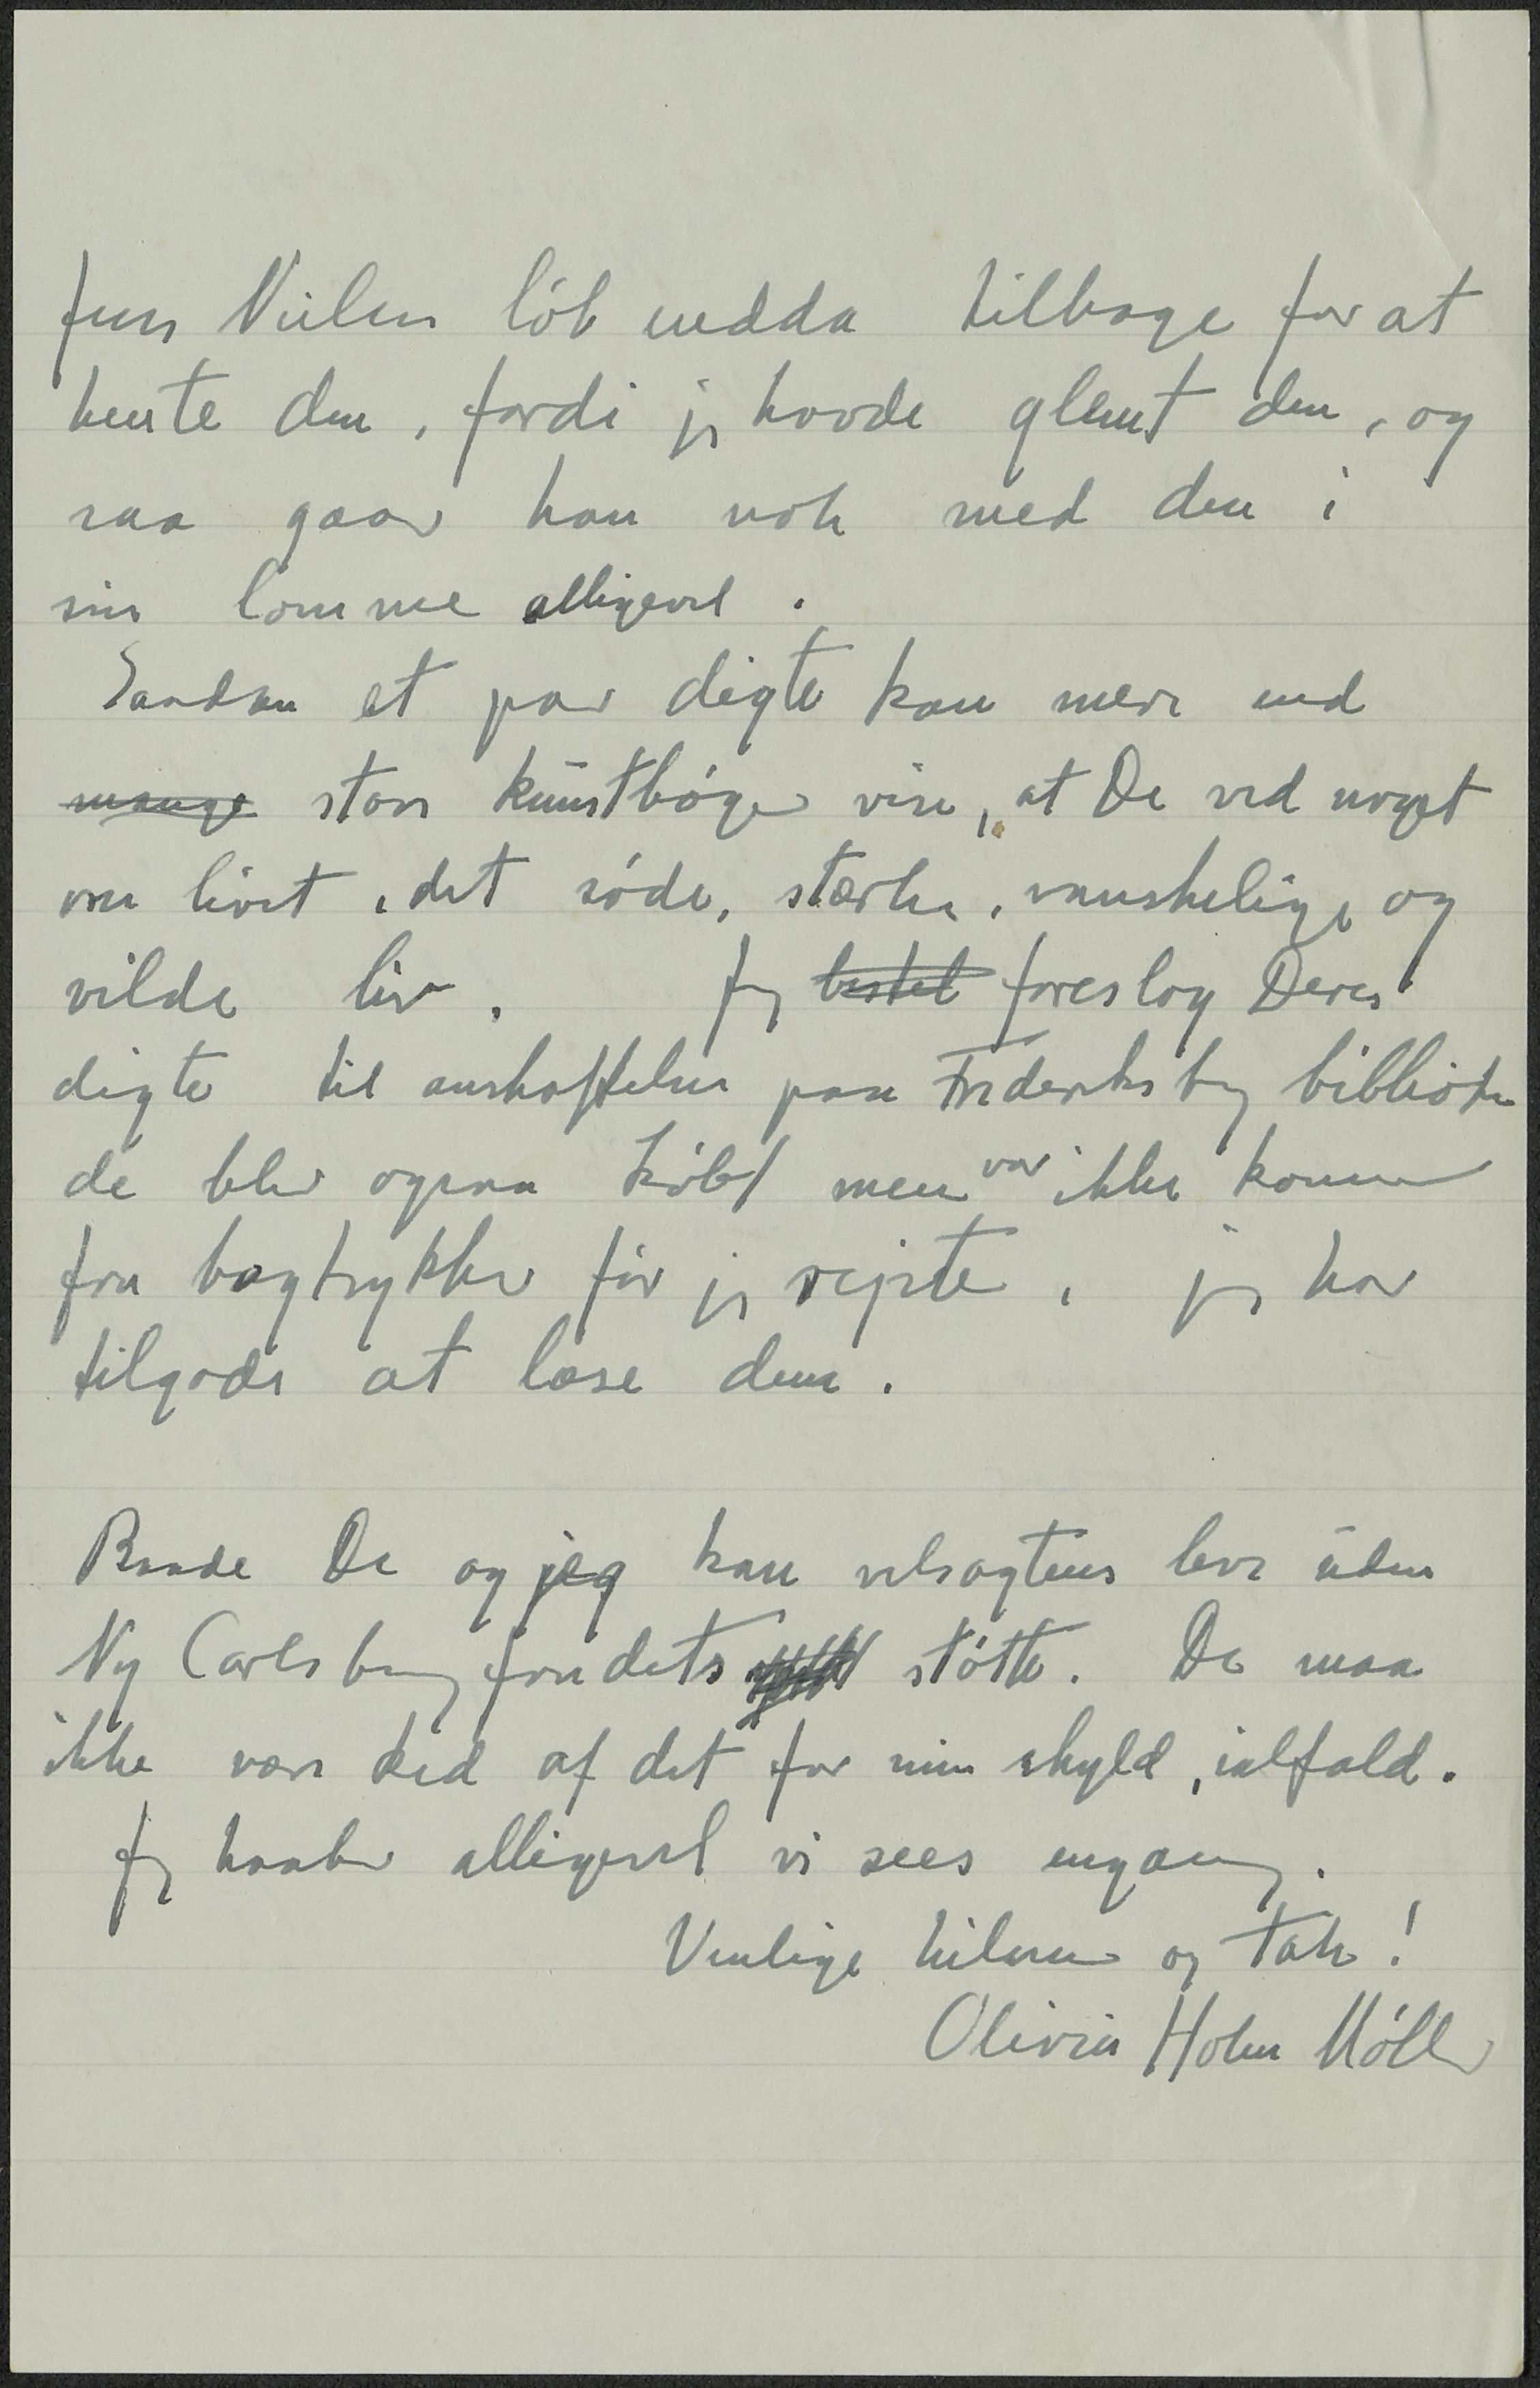 Jens Nielsen løb endda tilbage for at
hente den, fordi jeg havde glemt den, og
saa gaar han nok med den i
sin lomme alligevel.
Saadan et par digte kan mere end
mange store kunstbøger vise, at De ved noget
om livet, det søde, stærke, vanskelige og
vilde liv. Jeg bestil foreslog Deres
digte til anskaffelse paa Frederiksberg bibliotek
de blev ogsaa købt men var ikke kommet
fra bogtrykker før jeg rejste, jeg har
tilgode at læse dem.
Baade De og jeg kan velsagtens leve uden
Ny Carlsbergfondets støtte. De maa
ikke være ked af det for min skyld, ialfald.
Jeg haaber alligevel vi sees engang.
Venlige hilsener og tak!
Olivia Holm Møller